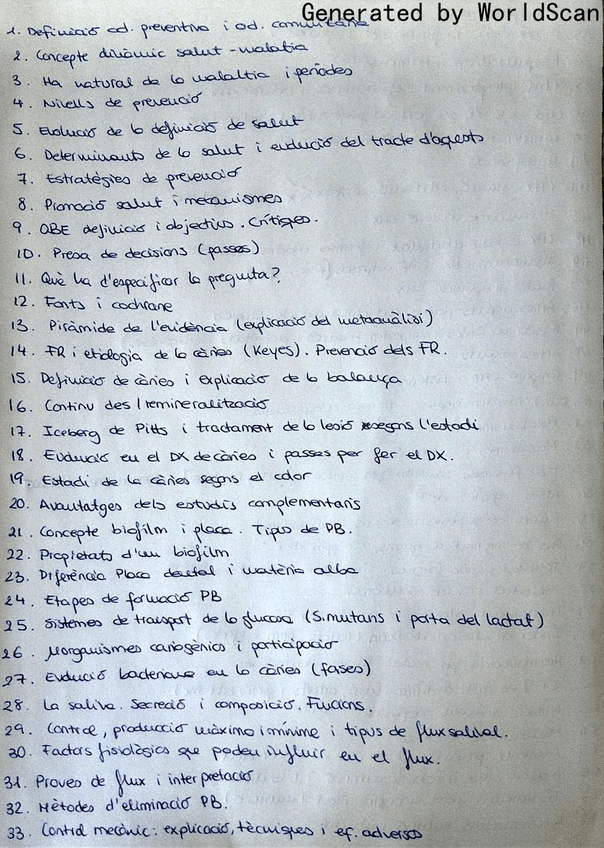 Generated by WorldScan
1. Definició od. preventiva i od. comunitària
2. Concepte dinàmic salut-malaltia
3. Ha natural de la malaltia i períodes
4. Nivells de prevenció
5. Evolució de la definició de salut
6. Determinants de la salut i evolució del tracte d'aquests
7. Estratègies de prevenció
8. Promoció salut i mecanismes
9. OBE definició i objectius. Crítiques.
10. Presa de decisions (passes)
11. Què ha d'especificar la pregunta?
12. Fonts i cochrane
13. Piràmide de l'evidència (explicació del metaanàlisi)
14. FR i etiologia de la càries (Keyes). Prevenció dels FR.
15. Definició de càries i explicació de la balança
16. Continu des/remineralització
17. Iceberg de Pitts i tractament de la lesió segons l'estadi
18. Evolució en el DX de càries i passes per fer el DX.
19. Estadi de la càries segons el color
20. Avantatges dels estudis complementaris
21. Concepte biofilm i placa. Tipus de PB.
22. Propietats d'un biofilm
23. Diferència Placa dental i matèria alba
24. Etapes de formació PB
25. Sistemes de transport de la glucosa (S. mutans i porta del lactat)
26. Morganismes cariogènics i participació
27. Evolució bacteriana en la càries (fases)
28. La saliva. Secreció i composició. Funcions.
29. Control, producció màxima i mínima i tipus de flux salival.
30. Factors fisiològics que poden influir en el flux.
31. Proves de flux i interpretació
32. Mètodes d'eliminació PB.
33. Control mecànic: explicació, tècniques i ef. adversos